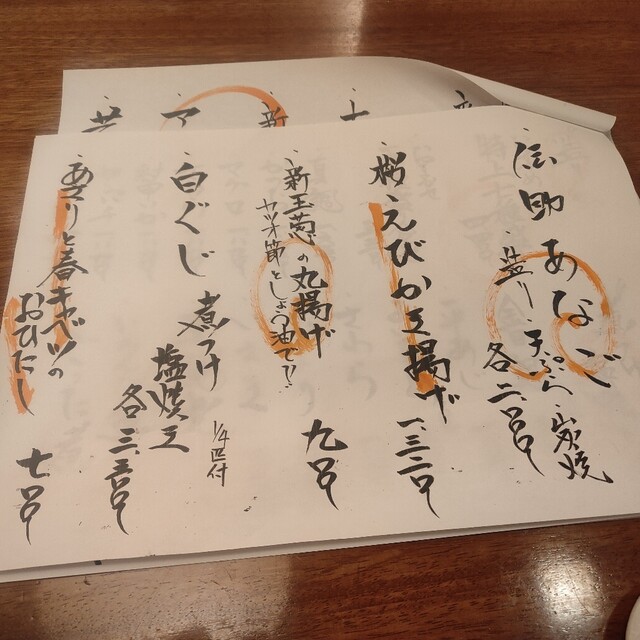 伝助あなご
造り・天ぷら・炭焼
各二、〇〇〇
桜えびかき揚げ
一、三二〇
新玉葱の丸揚げ
カツオ節としょう油で!!
九〇〇
白ぐじ
煮つけ
塩焼き
1/4匹付
各三、五〇〇
あさりと春キャベツの
おひたし
七〇〇
新
ア